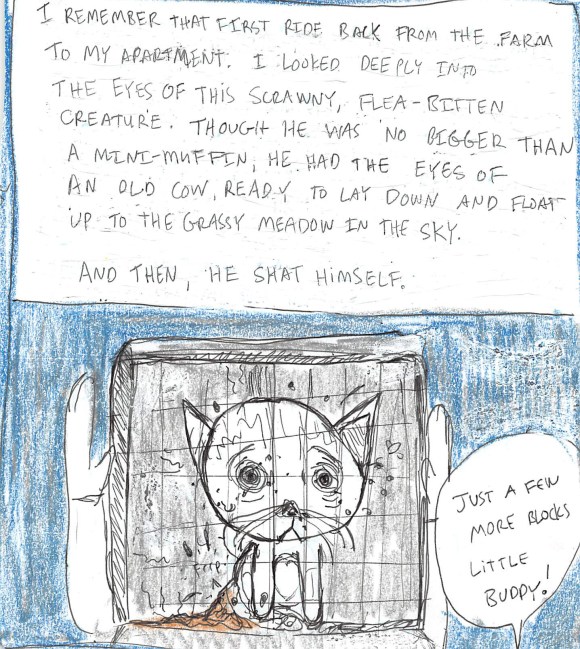 I REMEMBER THAT FIRST RIDE BACK FROM THE FARM
TO MY APARTMENT. I LOOKED DEEPLY INTO
THE EYES OF THIS SCRAWNY, FLEA-BITTEN
CREATURE. THOUGH HE WAS NO BIGGER THAN
A MINI-MUFFIN, HE HAD THE EYES OF
AN OLD COW, READY TO LAY DOWN AND FLOAT
UP TO THE GRASSY MEADOW IN THE SKY.
AND THEN, HE SHAT HIMSELF.
JUST A FEW
MORE BLOCKS
LITTLE
BUDDY!